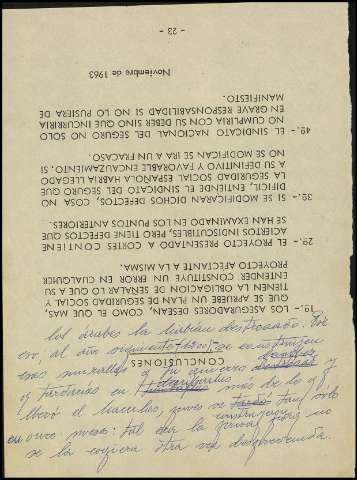 CONCLUSIONES
1º.- LOS ASEGURADORES DESEAN, COMO EL QUE MAS,
QUE SE APRUEBE UN PLAN DE SEGURIDAD SOCIAL Y
TIENEN LA OBLIGACION DE SEÑALAR LO QUE A SU
ENTENDER CONSTITUYE UN ERROR EN CUALQUIER
PROYECTO AFECTANTE A LA MISMA.
2º.- EL PROYECTO PRESENTADO A CORTES CONTIENE
ACIERTOS INDISCUTIBLES, PERO TIENE DEFECTOS QUE
SE HAN EXAMINADO EN LOS PUNTOS ANTERIORES.
3º.- SI SE MODIFICARAN DICHOS DEFECTOS, COSA NO
DIFICIL, ENTIENDE EL SINDICATO DEL SEGURO QUE
LA SEGURIDAD SOCIAL ESPAÑOLA HABRIA LLEGADO
A SU DEFINITIVO Y FAVORABLE ENCAUZAMIENTO. SI
NO SE MODIFICAN SE IRA A UN FRACASO.
4º.- EL SINDICATO NACIONAL DEL SEGURO NO SOLO
NO CUMPLIRIA CON SU DEBER SINO QUE INCURRIRIA
EN GRAVE RESPONSABILIDAD SI NO LO PUSIERA DE
MANIFIESTO.
Noviembre de 1963
- 23 -
los árabes la habían destrozado. Por
eso, al año siguiente (1200) se construyen
esas murallas y
y tardarías en más de lo q/
llevó el hacerlas, pues se tardó tan sólo
en once meses: tal era la prisa para que no
se la cogiera otra vez desprevenida.